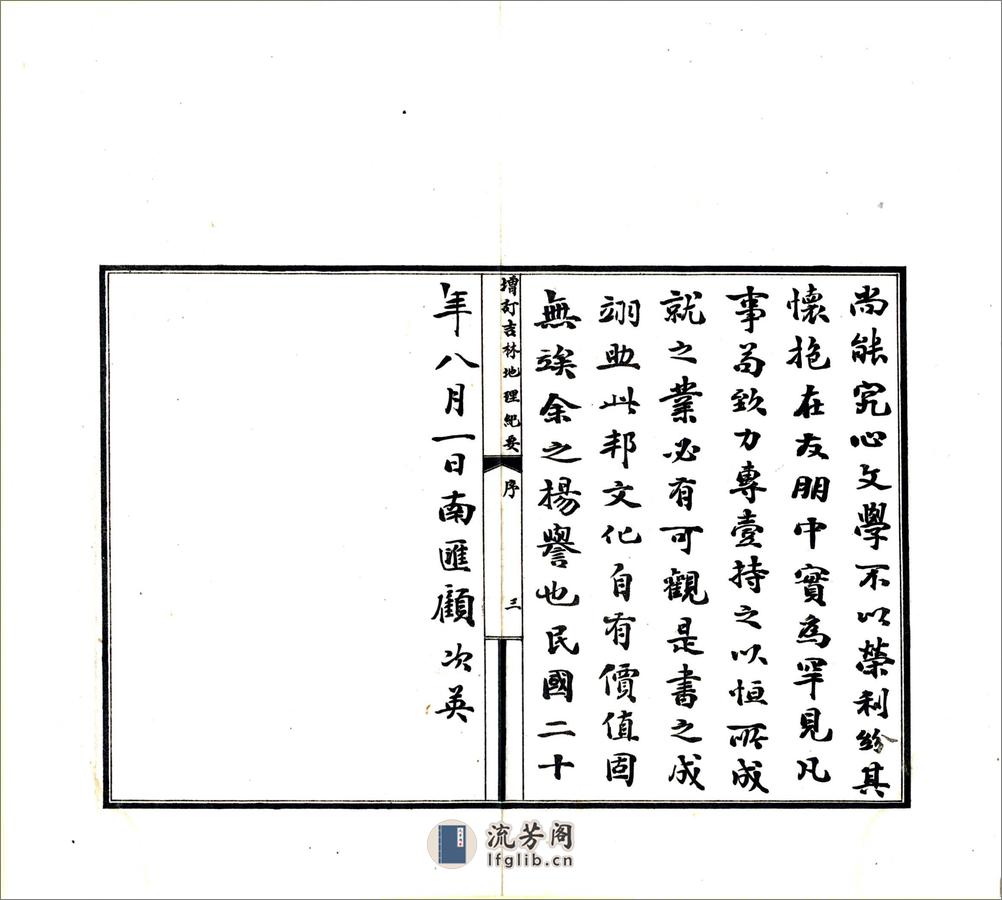 尚能究心文學不以榮利紛其
懷抱在友朋中實為罕見凡
事苟致力專壹持之以恒所成
就之業必有可觀是書之成
翊助此邦文化自有價值固
無竢余之揚譽也民國二十
增訂吉林地理紀要
序
三
年八月一日南匯顧次英
流芳阁
lfglib.cn